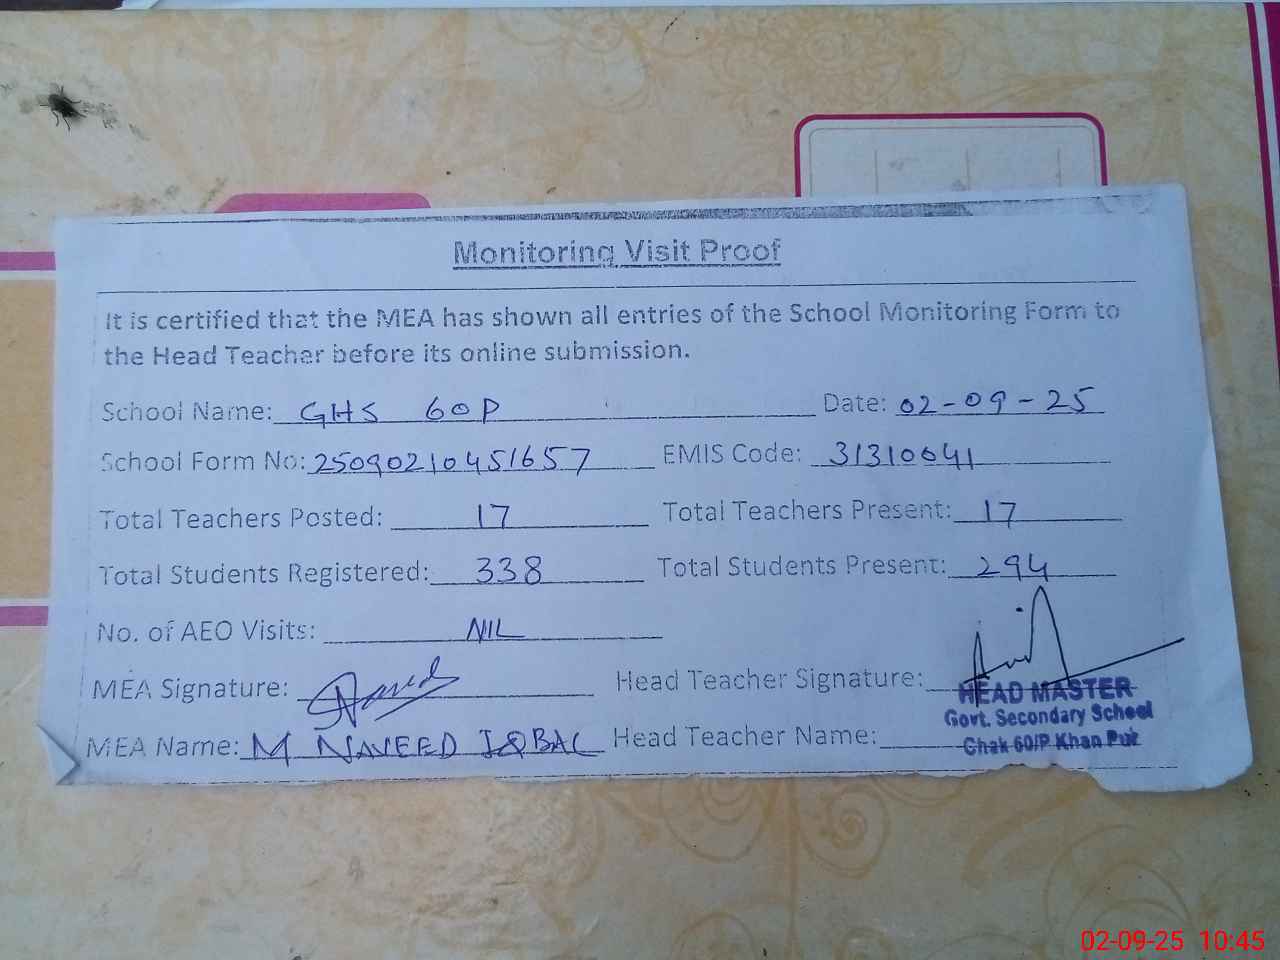 Monitoring Visit Proof
It is certified that the MEA has shown all entries of the School Monitoring Form to
the Head Teacher before its online submission.
School Name: GHS 60P Date: 02-09-25
School Form No: 25090210451657 EMIS Code: 31310041
Total Teachers Posted: 17 Total Teachers Present: 17
Total Students Registered: 338 Total Students Present: 294
No. of AEO Visits: NIL
MEA Signature: Head Teacher Signature:
HEAD MASTER
Govt. Secondary School
MEA Name: M NAVEED IQBAL Head Teacher Name:
Chak 60/P Khan Pur
02-09-25 10:45